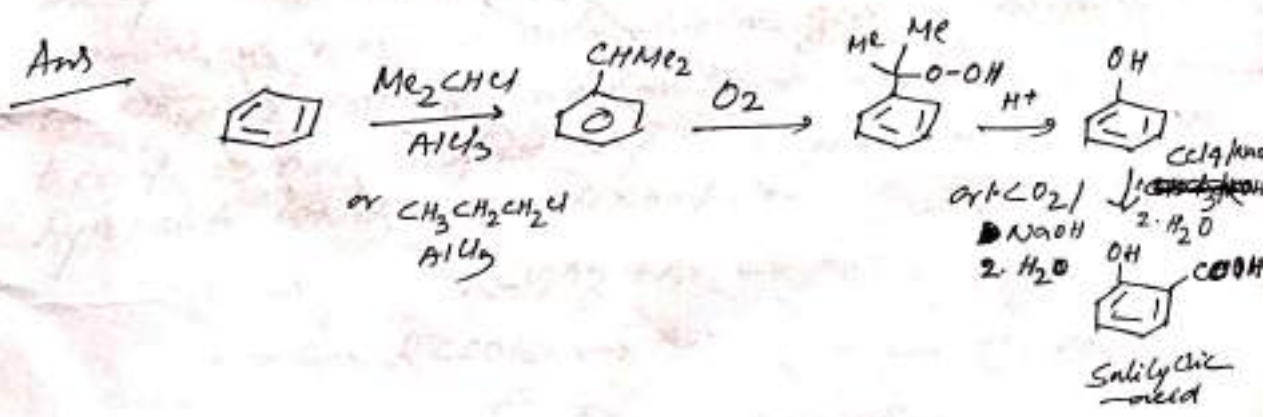 Ans
Me₂CHCl
AlCl₃
or CH₃CH₂CH₂Cl
AlCl₃
CHMe₂
O₂
Me Me
O-OH
H⁺
OH
CCl₄/
2. H₂O
or 1. CO₂/
NaOH
2. H₂O
OH
COOH
Salilyclic
acid